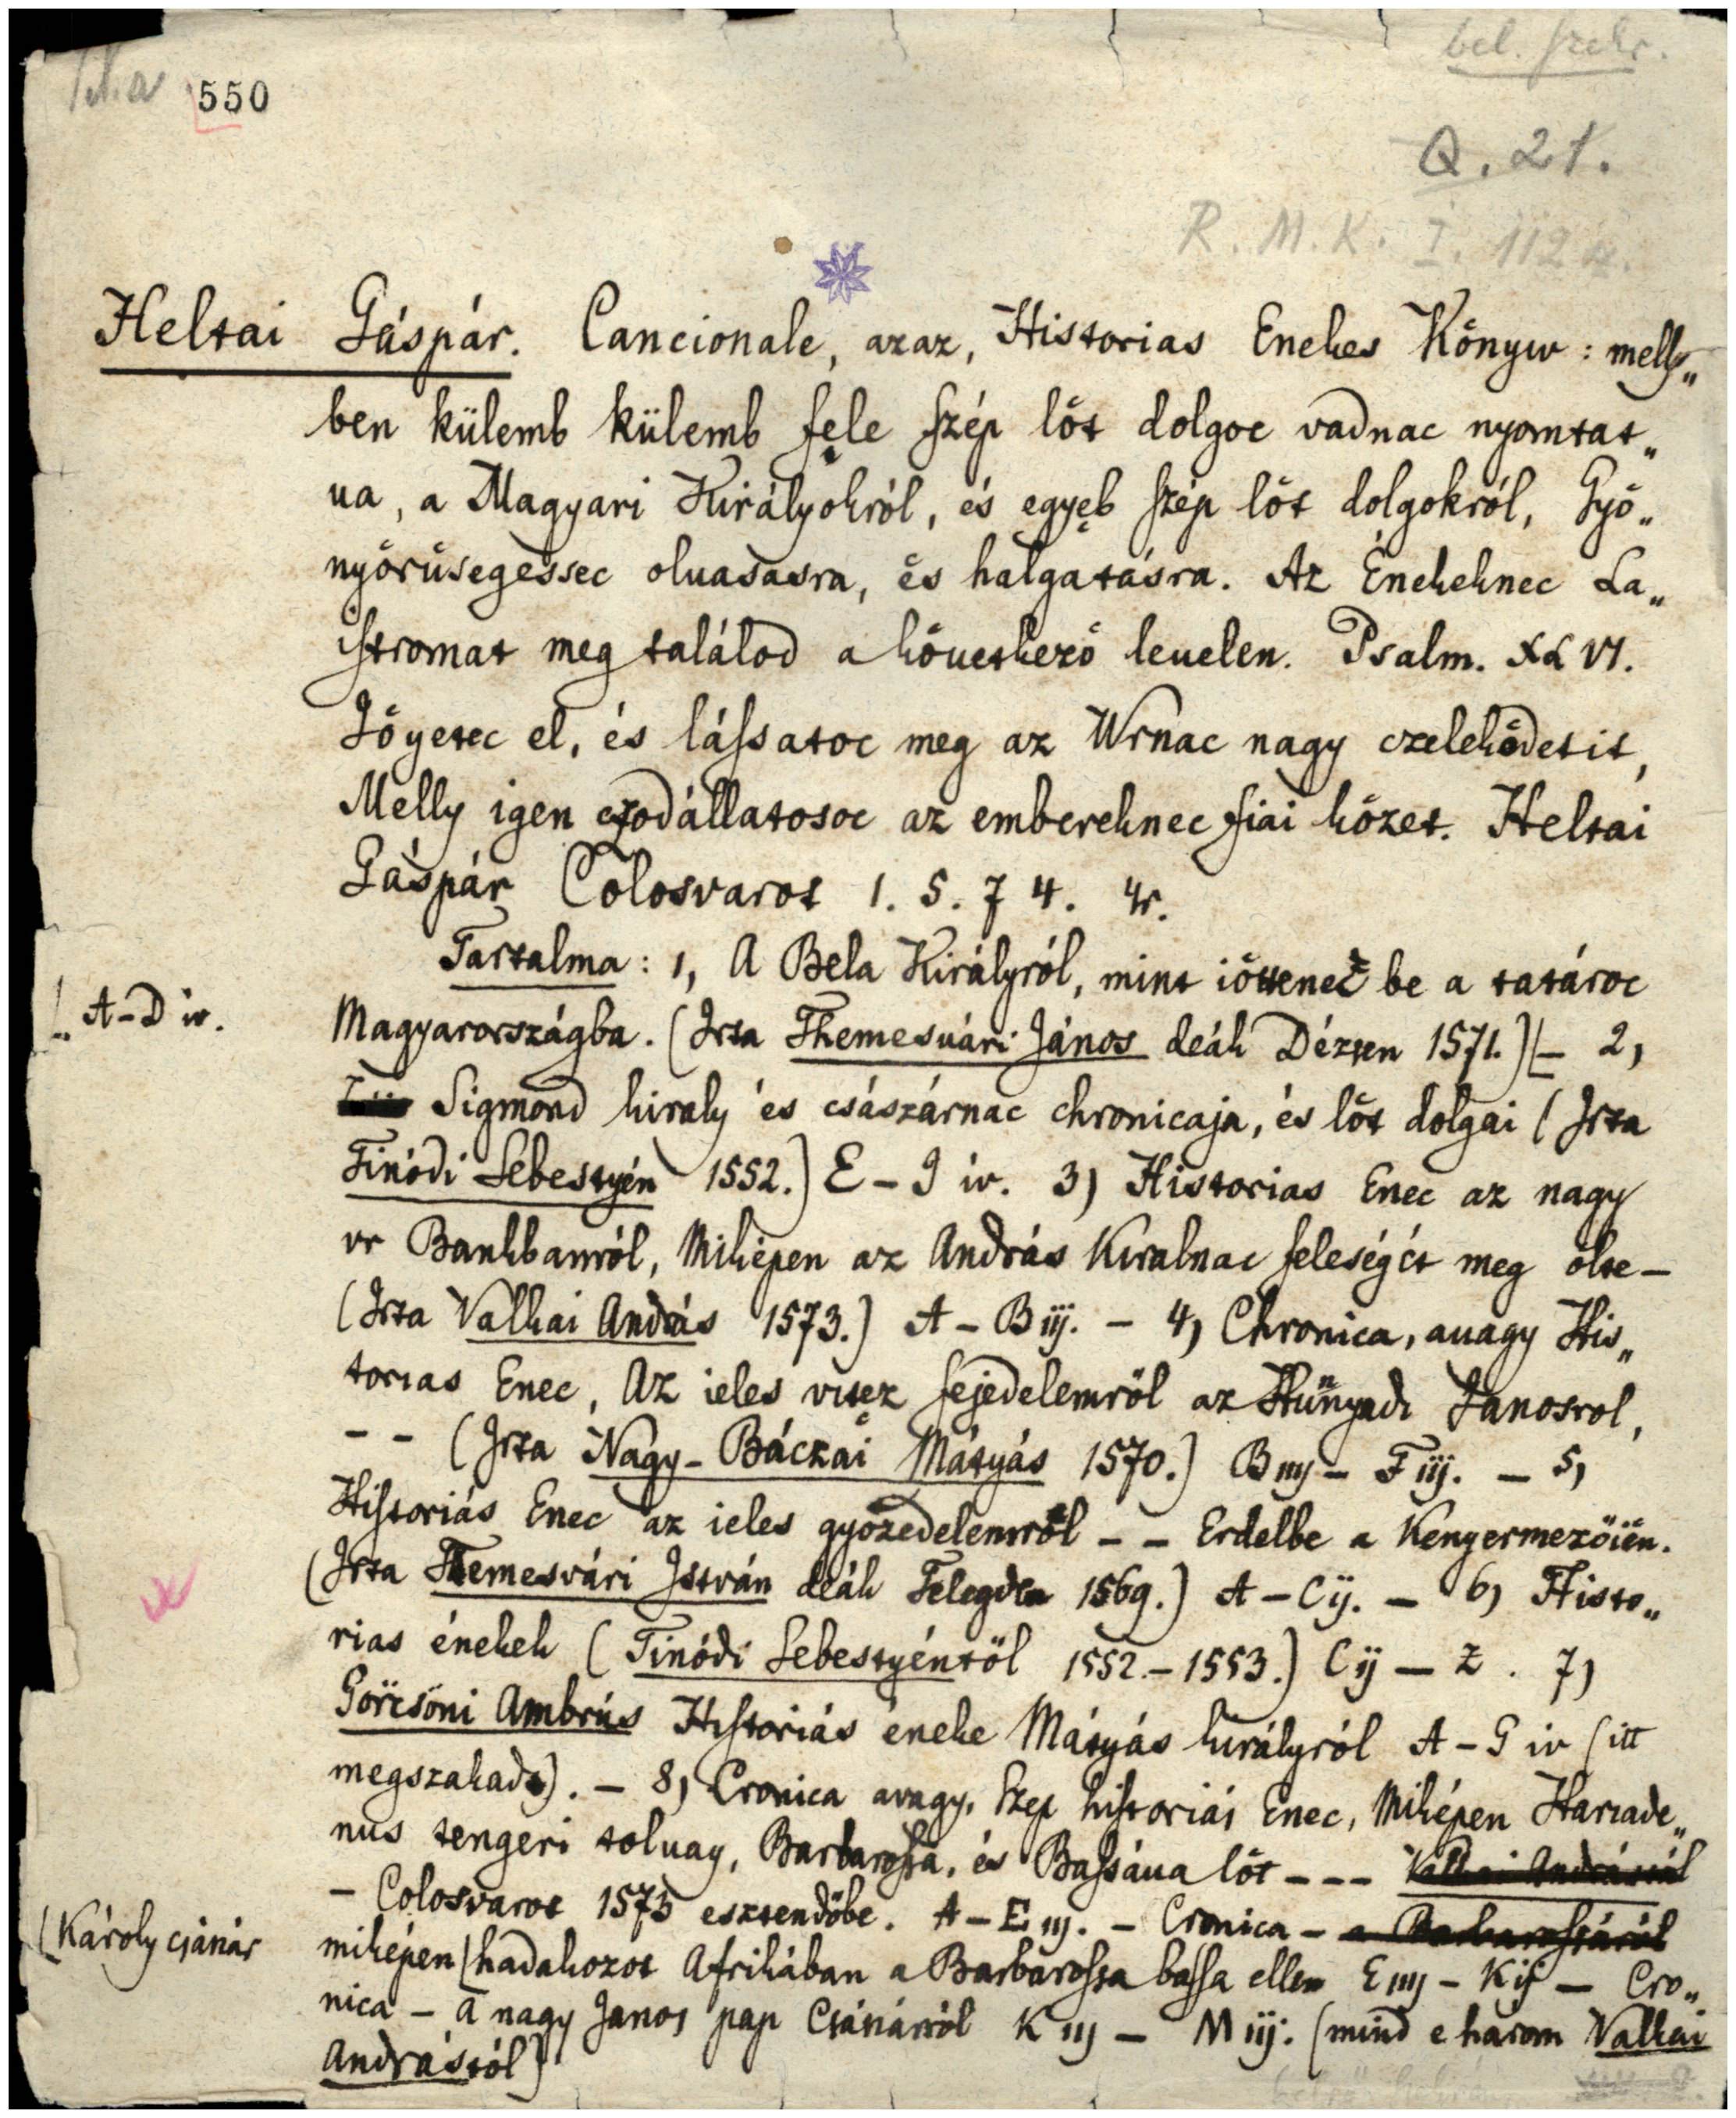 550
bel. szekr.
Q. 21.
R. M. K. I. 112
Heltai Gáspár. Cancionale, azaz, Historias Enekes Kőnyw: melly„
ben külemb külemb fęle szép lőt dolgoc vadnac nyomtat„
ua, a Magyari Királyokról, és egyęb szép lőt dolgokról, Győ„
nyőrűsegessec oluasasra, és halgatásra. Az Énekeknec La„
stromat meg találod a kőuetkező leuelen. Psalm. XLVI.
Iőyetec el, és lássatoc meg az Wrnac nagy czelekődetit,
Melly igen czodállatosoc az embereknec fiai kőzet. Heltai
Gáspár Colosvarot 1. 5. 7 4. 4r.
Tartalma: 1, A Bela Királyról, mint iőttenec be a tatároc
A-D iv.
Magyarországba. (Irta Themesuári János deák Dézsen 1571.) – 2,
Sigmond kiraly és császárnac chronicaja, és lőt dolgai (Irta
Tinódi Sebestyén 1552.) E – I iv. 3) Historias Enec az nagy
vr Bankbanról, Miképen az András Kiralnac feleségét meg ölte –
(Irta Valkai András 1573.) A – B iij. – 4, Chronica, auagy His„
torias Enec, Az ieles vitęz fejedelemről az Hunyadi Janosrol,
– – (Irta Nagy-Báczai Mátyás 1570.) B iiij – F iij. – 5,
Historiás Enec az ieles győzedelemről – – Erdelbe a Kenyermezőién.
(Irta Themesvári István deák Telegden 1569.) A – C ij. – 6, Histo„
rias énekek (Tinódi Sebestyéntől 1552.–1553.) C ij – Z. 7,
Görcsöni Ambrús Historiás éneke Mátyás királyról A – G iv (itt
megszakad). – 8, Cronica avagy, Szep historiás Enec, Miképen Hariade„
nus tengeri toluay, Barbarossa, és Bassáua lőt – – – Valkai Andrástól
– Colosvarot 1573 esztendőbe. A – E iij. – Cronica – a Barbarossáról
(Károly császár
miképen hadakozot Afrikában a Barbarossa bassa ellen E iiij – K ij – Cro„
nica – A nagy Janos pap Császárról K iij – M iij. (mind e három Valkai
Andrástól)